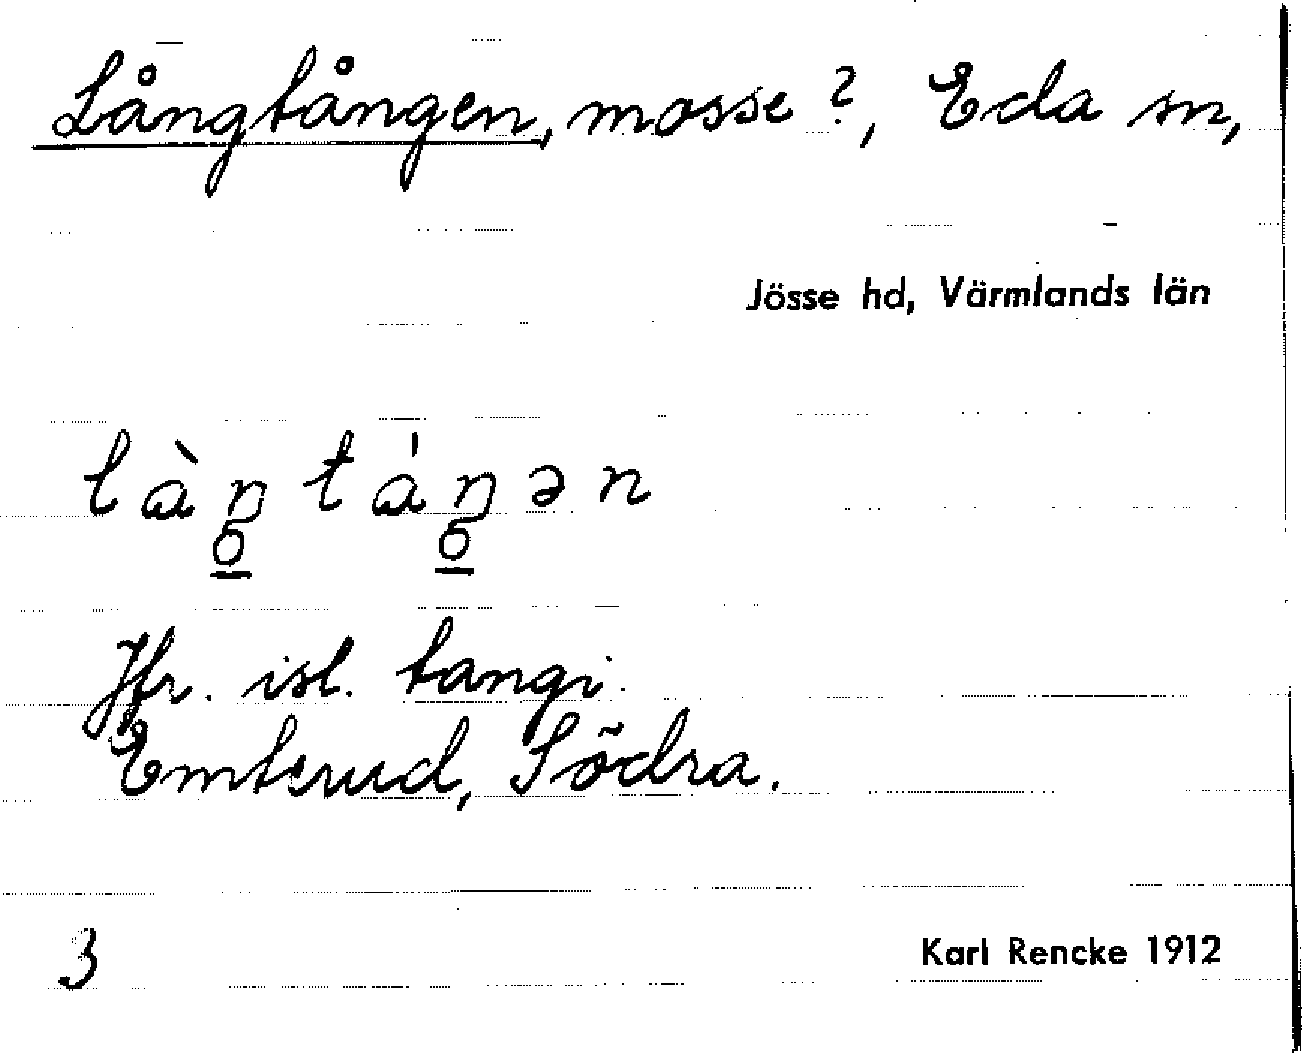 Långtången, mosse?, Eda sn,
Jösse hd, Värmlands län
làŋtáŋən
Jfr. isl. tangi.
Emterud, Södra.
3 Karl Rencke 1912